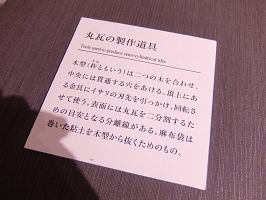 丸瓦の製作道具
Tools used to produce semi-cylindrical tiles
木型(枠ともいう)は二つの木を合わせ、
中央には貫通する穴をあける。頂上にあ
る金具にイサリの刃先を引っかけ、回転さ
せて使う。表面には丸瓦を二分割するた
めの目安となる分離線がある。麻布袋は
巻いた粘土を木型から抜くためのもの。